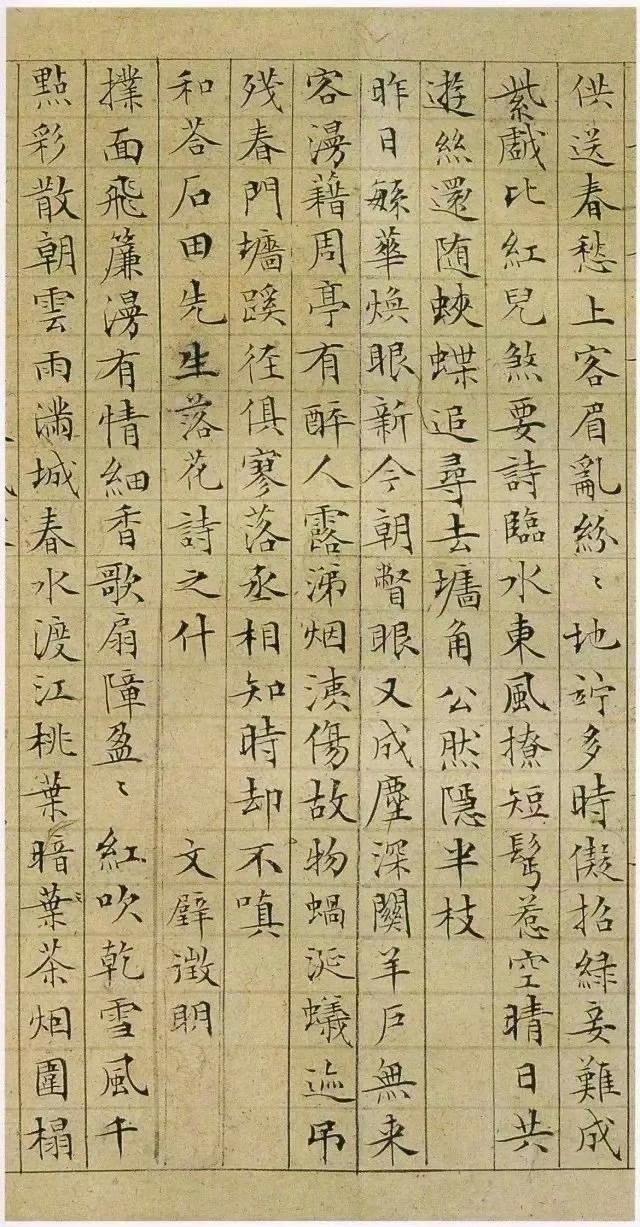 供送春愁上客眉亂紛〻地竚多時儗招綠妾難成
些戲比紅兒煞要詩臨水東風撩短鬂惹空晴日共
遊絲還随蛺蝶追尋去墻角公然隱半枝
昨日繁華煥眼新今朝瞥眼又成塵深關羊戶無来
客漫藉周亭有醉人露涕烟洟傷故物蝸涎蟻迹吊
残春門墻蹊徑俱寥落丞相知時却不嗔
和荅石田先生落花詩之什 文壁徵明
撲面飛簾漫有情細香歌扇障盈〻紅吹乾雪風千
點彩散朝雲雨滿城春水渡江桃葉暗葉茶烟圍榻